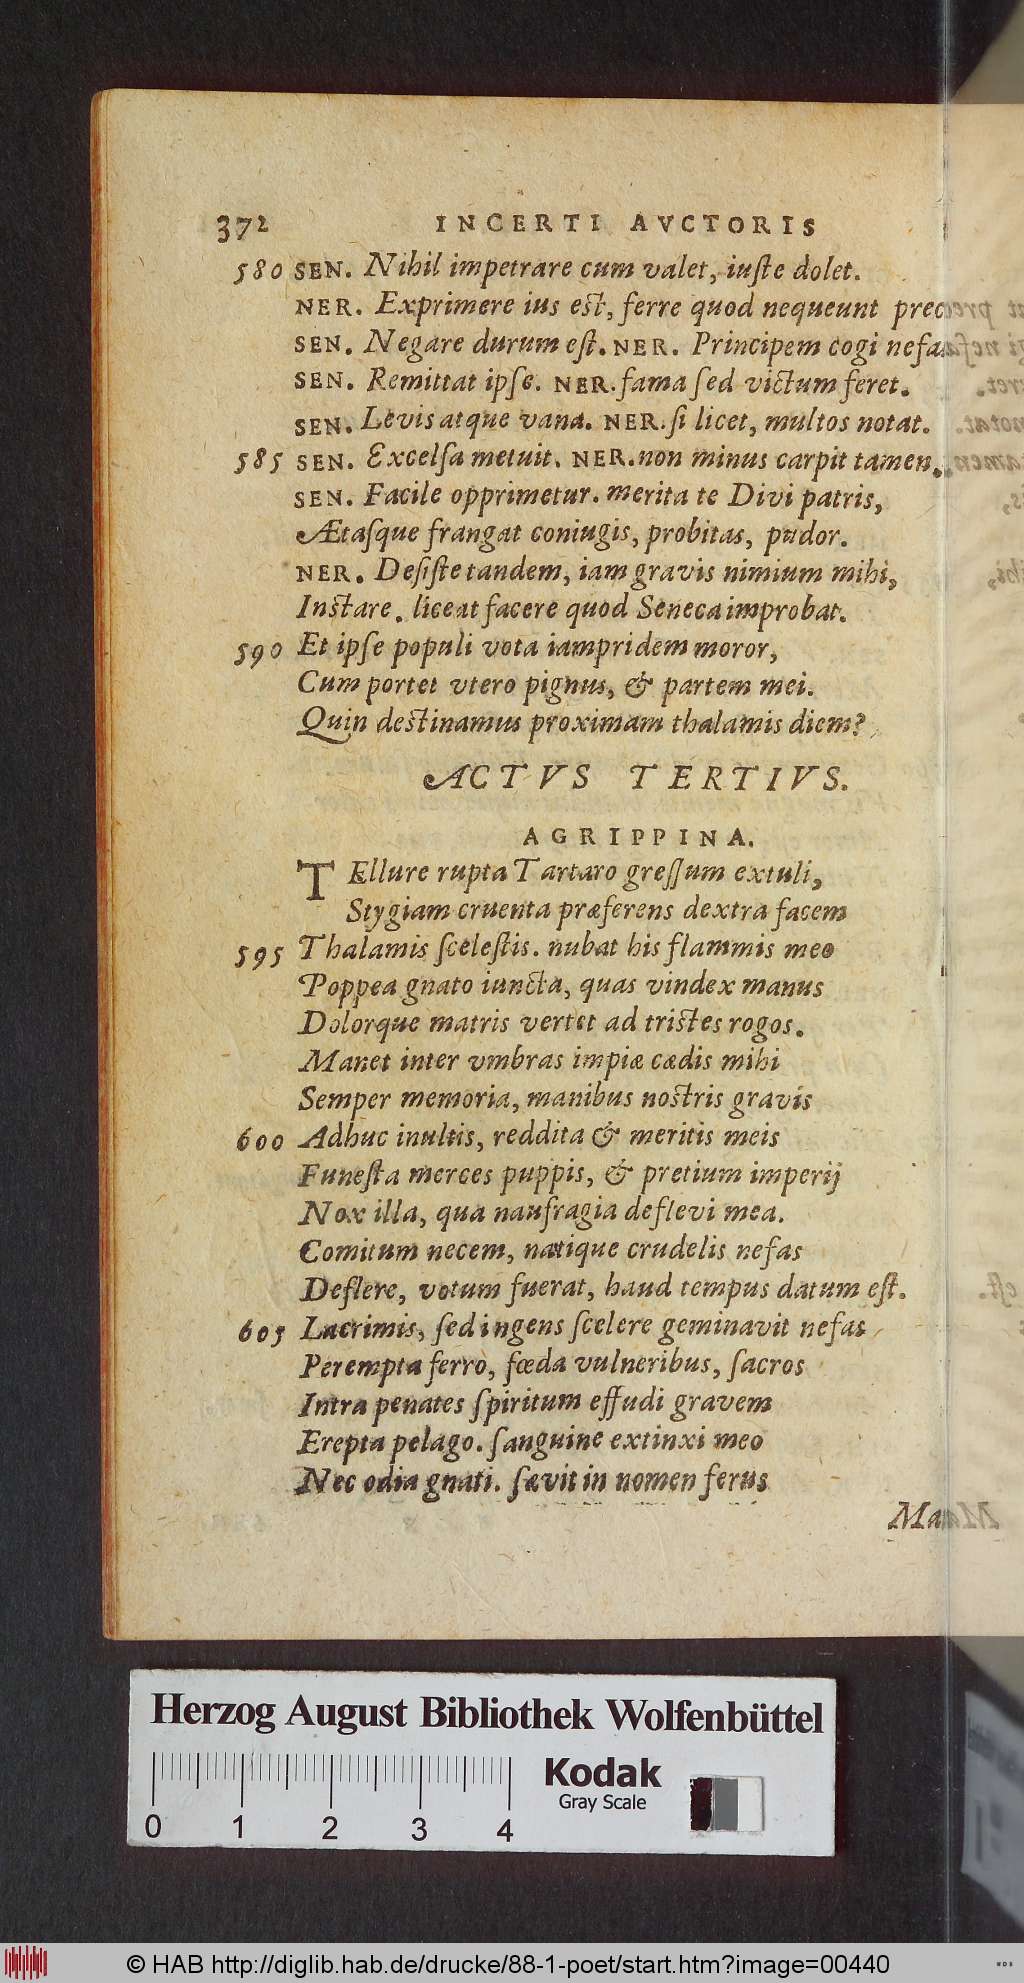 372 INCERTI AVCTORIS
580 SEN. Nihil impetrare cum valet, iuſte dolet.
NER. Exprimere ius est, ferre quod nequeunt prec
SEN. Negare durum eſt. NER. Principem cogi nefa
SEN. Remittat ipſe. NER. fama ſed victum feret.
SEN. Levis atque vana. NER. ſi licet, multos notat.
585 SEN. Excelſa metuit. NER. non minus carpit tamen.
SEN. Facile opprimetur. merita te Divi patris,
Ætaſque frangat coniugis, probitas, pudor.
NER. Deſiſte tandem, iam gravis nimium mihi,
Instare. liceat facere quod Seneca improbat.
590 Et ipſe populi vota iampridem moror,
Cum portet vtero pignus, & partem mei.
Quin destinamus proximam thalamis diem?
ACTVS TERTIVS.
AGRIPPINA.
TEllure rupta Tartaro greſſum extuli,
Stygiam cruenta præferens dextra facem
595 Thalamis ſceleſtis. nubat his flammis meo
Poppea gnato iuncta, quas vindex manus
Dolorque matris vertet ad tristes rogos.
Manet inter vmbras impiæ cædis mihi
Semper memoria, manibus nostris gravis
600 Adhuc inultis, reddita & meritis meis
Funeſta merces puppis, & pretium imperij
Nox illa, qua naufragia deflevi mea.
Comitum necem, natique crudelis nefas
Deflere, votum fuerat, haud tempus datum eſt.
605 Lacrimis, ſed ingens ſcelere geminavit nefas
Perempta ferro, fœda vulneribus, ſacros
Intra penates ſpiritum effudi gravem
Erepta pelago. ſanguine extinxi meo
Nec odia gnati. ſævit in nomen ferus
Ma
Herzog August Bibliothek Wolfenbüttel
0 1 2 3 4
Kodak
Gray Scale
© HAB http://diglib.hab.de/drucke/88-1-poet/start.htm?image=00440